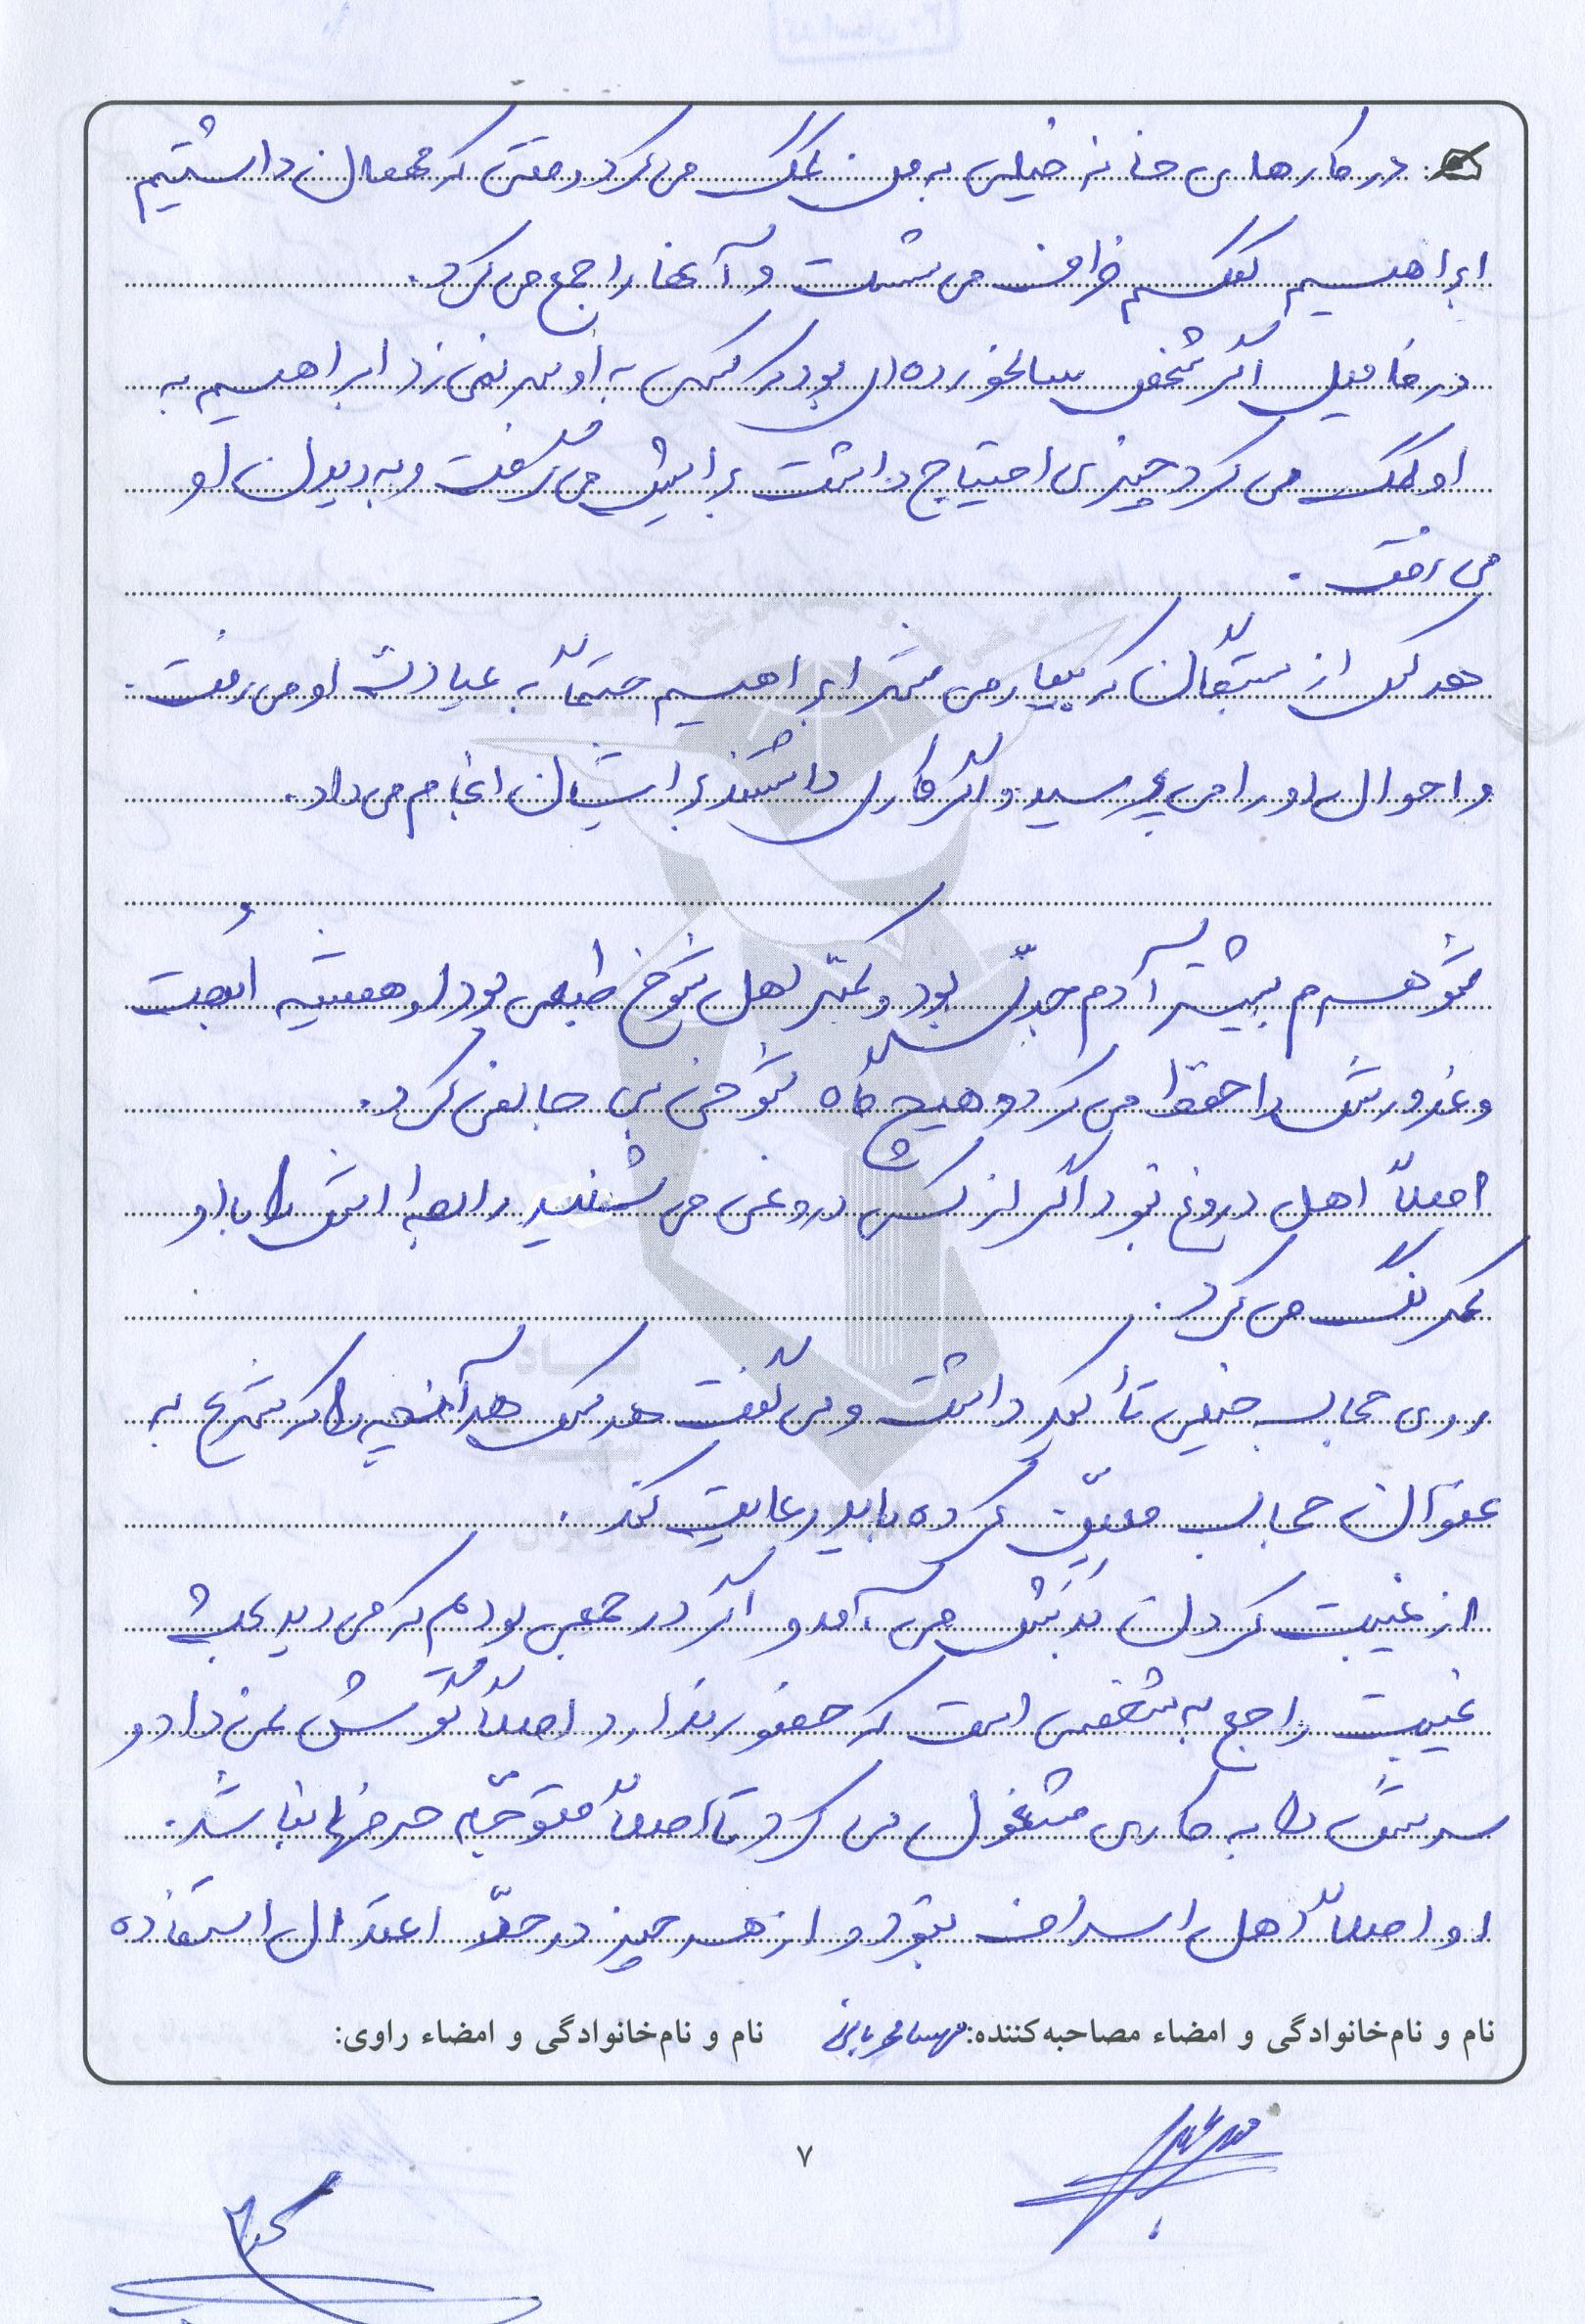 در کارهای خانه خیلی به من کمک می‌کرد وقتی که مهمان داشتیم
ابراهیم کمکم ظرف می‌شست و آنها را جمع می‌کرد.
در فامیل اگر شخص سالخورده‌ای بود که کسی به او سر نمی‌زد ابراهیم به
او کمک می‌کرد چیزی احتیاج داشت برایش می‌گرفت و به دیدن او
می‌رفت.
هر یک از بستگان که بیمار می‌شد ابراهیم حتماً به عیادت او می‌رفت.
و احوال او را می‌پرسید و اگر کاری داشتند برایشان انجام می‌داد.
شوهرم بیشتر آدم جدّی بود و کمتر اهل شوخ طبعی بود او همیشه اُبهت
و غرورش را حفظ می‌کرد و هیچ گاه شوخی بی جا نمی‌کرد.
اصلاً اهل دروغ نبود اگر از کسی دروغی می‌شنید رابطه اش را با او
کمرنگ می‌کرد.
روی حجاب خیلی تأکید داشت و می‌گفت هر کس هر آنچه را که شرع به
عنوان حجاب معیّن کرده باید رعایت کند.
از غیبت کردن بدش می‌آمد و اگر در جمعی بودیم که می‌دید بحث
غیبت راجع به شخصی است که حضور ندارد اصلاً گوش نمی‌داد و
سرش را به کاری مشغول می‌کرد تا اصلاً متوجّه حرفها نباشد.
او اصلاً اهل اسراف نبود و از هر چیز در حدّ اعتدال استفاده
نام و نام‌خانوادگی و امضاء مصاحبه‌کننده: نام و نام‌خانوادگی و امضاء راوی:
۷